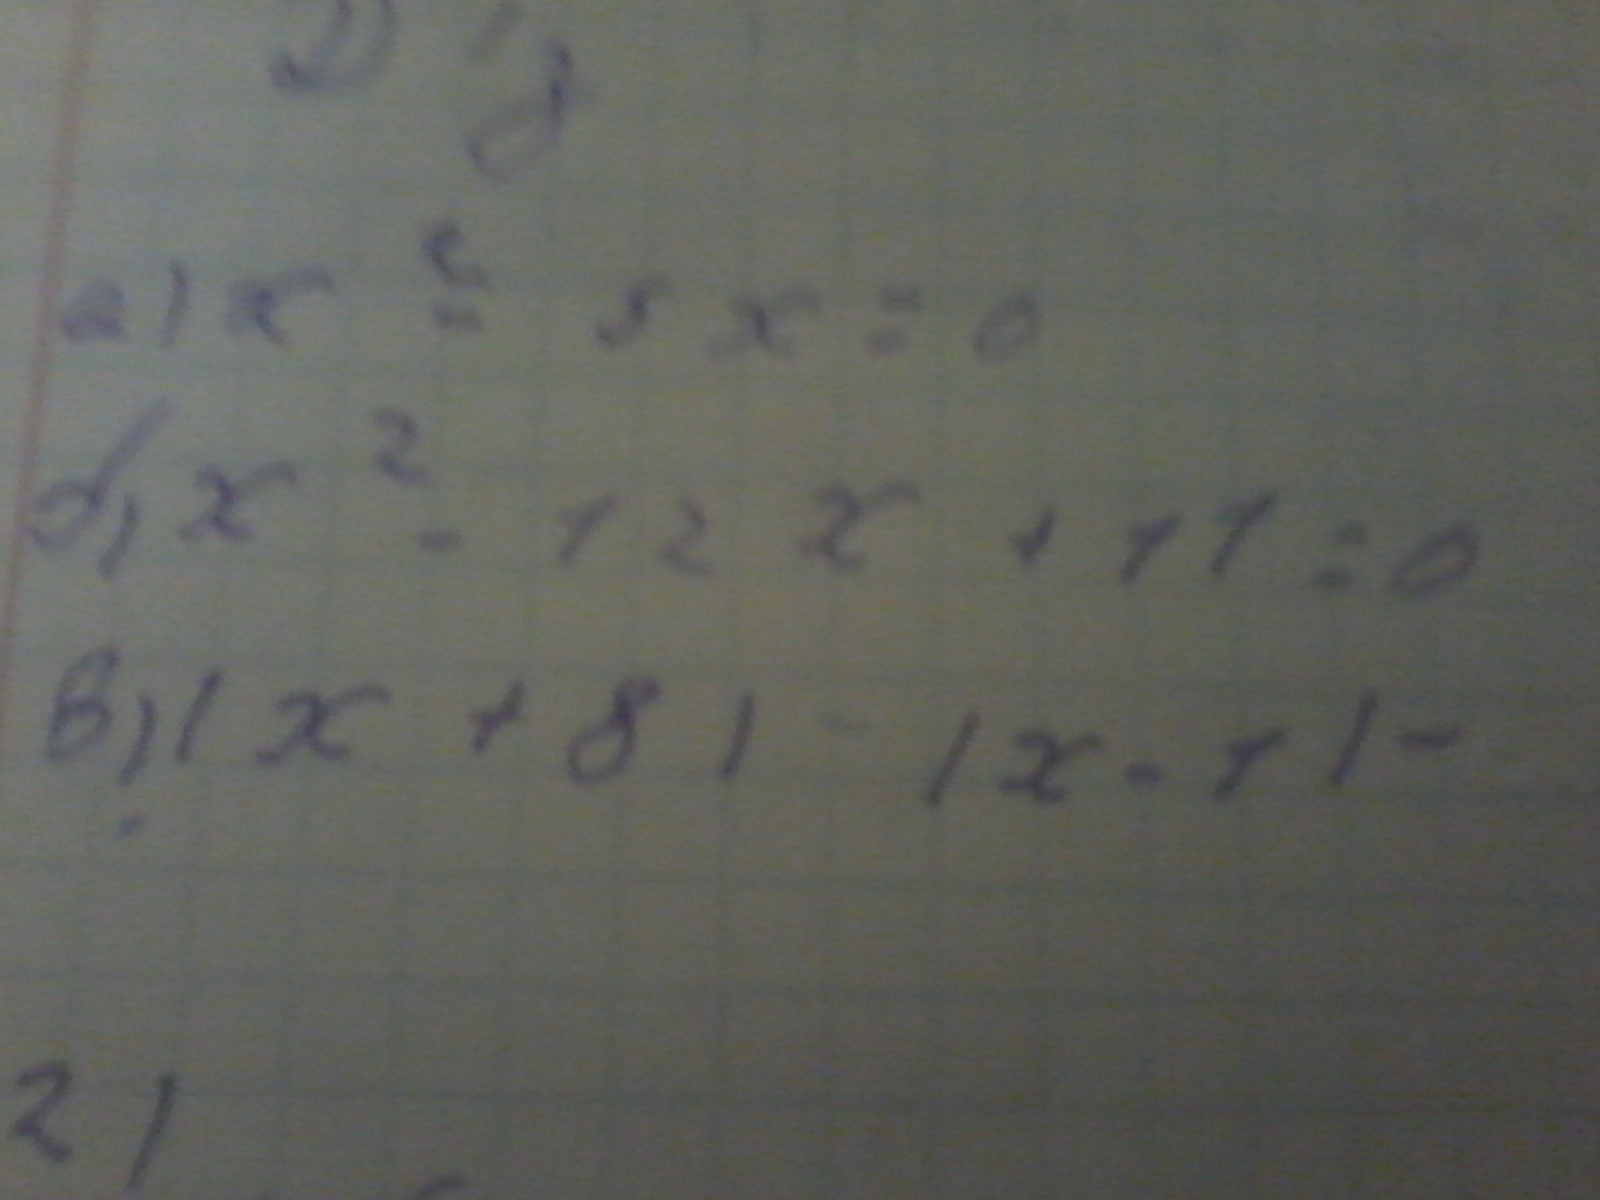 Д/з
а) x² - 5x = 0
б) x² - 12x + 11 = 0
в) |x + 8| - |x - 1| -
2)